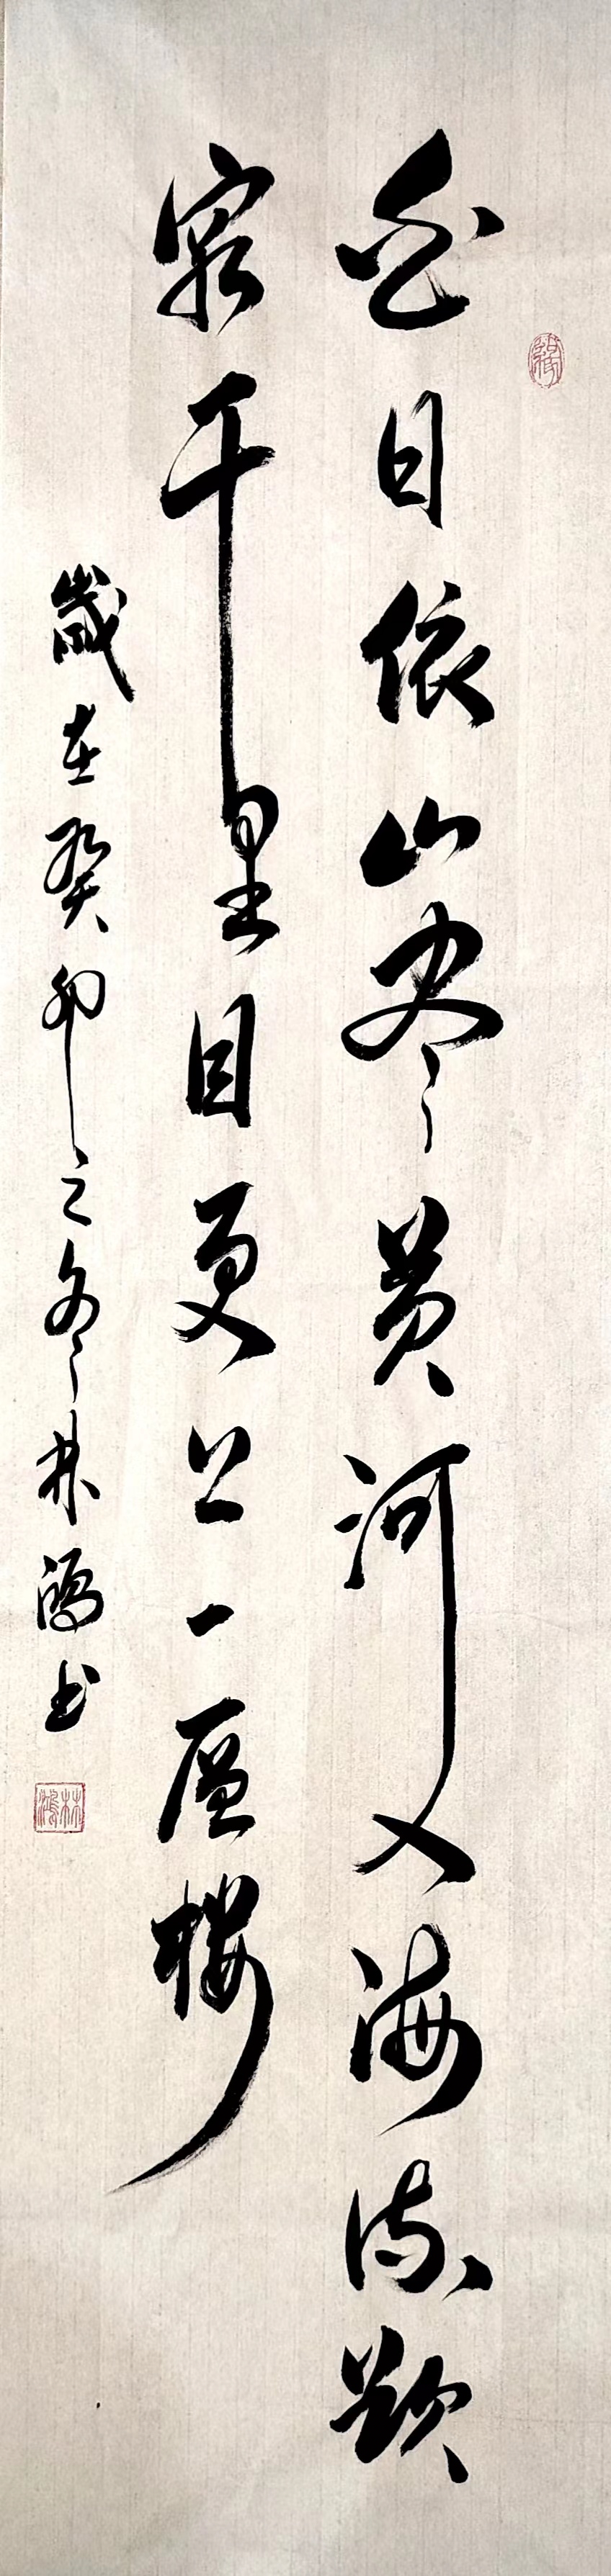 白日依山尽黄河入海流欲
穷千里目更上一层楼
岁在癸卯之冬林鸿书
林鸿